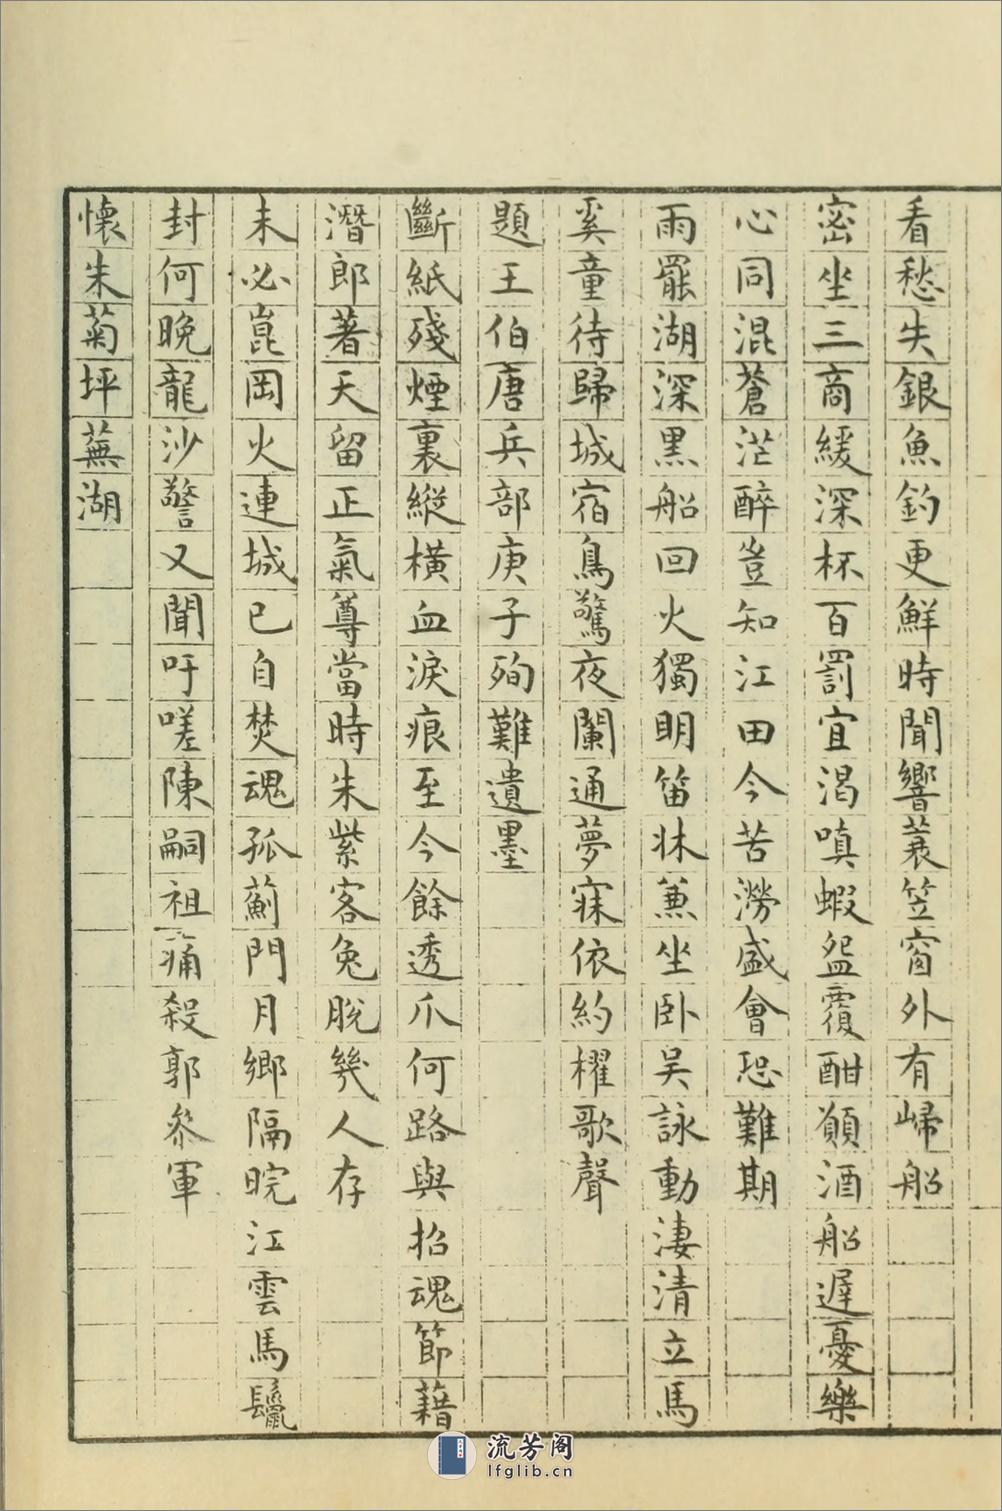 看愁失銀魚釣更鮮時聞響蓑笠窗外有歸船
密坐三商緩深杯百罰宜渴嗔蝦盌覆酣顧酒船遲憂樂
心同混蒼茫醉豈知江田今苦澇盛會恐難期
雨罷湖深黑船回火獨明笛牀兼坐臥吳詠動淒清立馬
奚童待歸城宿鳥驚夜闌通夢寐依約櫂歌聲
題王伯唐兵部庚子殉難遺墨
斷紙殘煙裏縱橫血淚痕至今餘透爪何路與招魂節藉
潛郎著天留正氣尊當時朱紫客兔脫幾人存
未必崑岡火連城已自焚魂孤薊門月鄉隔晥江雲馬鬣
封何晚龍沙警又聞吁嗟陳嗣祖痛殺郭參軍
懷朱菊坪蕪湖
流芳阁
lfglib.cn